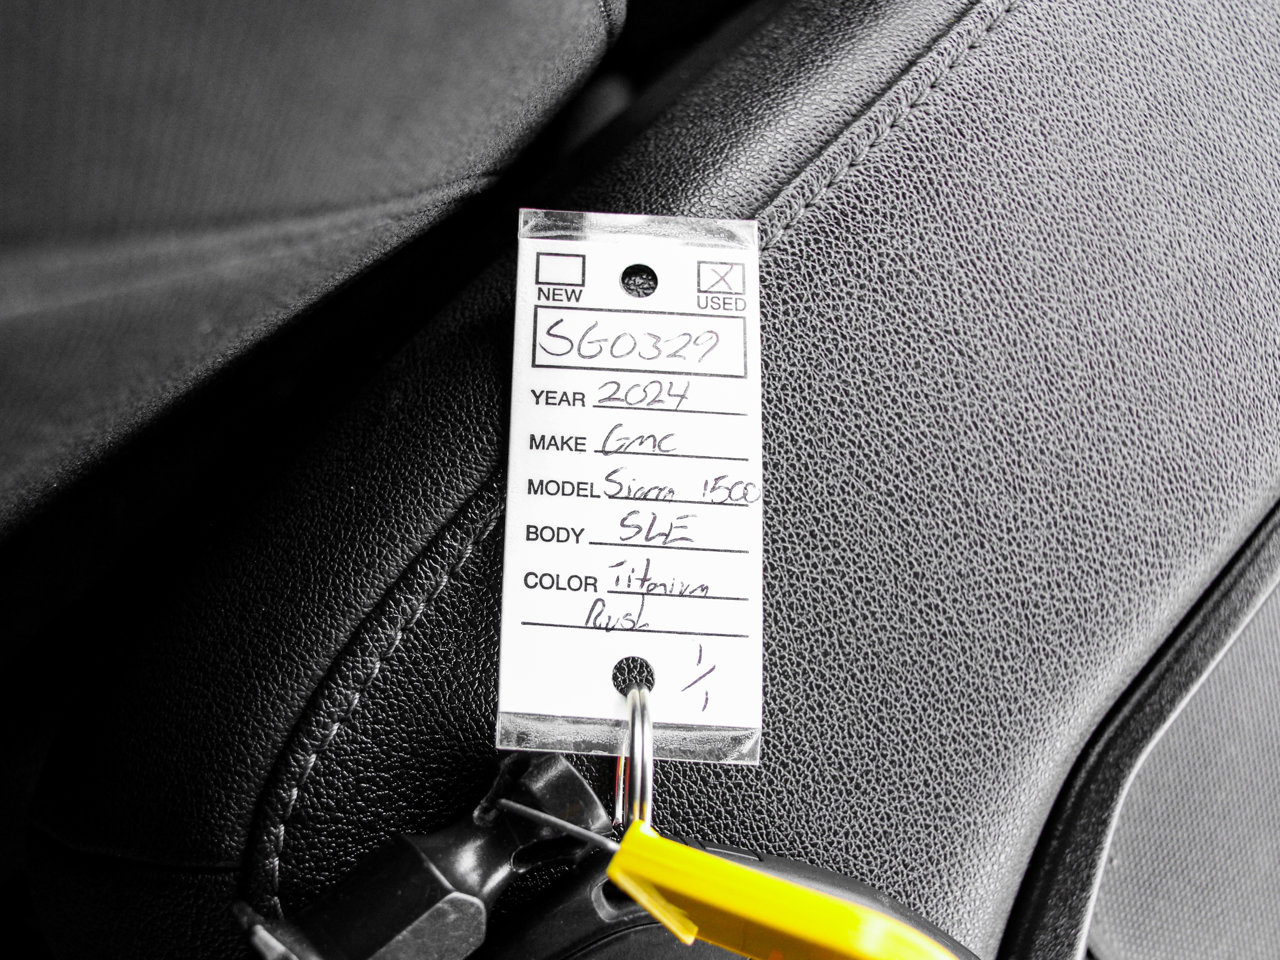 NEW X USED
SG0329
YEAR 2024
MAKE GMC
MODEL Sierra 1500
BODY SLE
COLOR Titanium
Rush
1/1